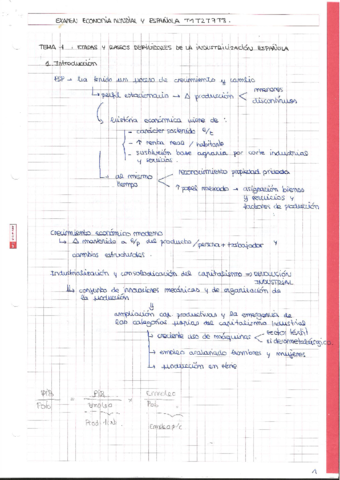 EXAMEN: ECONOMÍA MUNDIAL Y ESPAÑOLA
TEMA 1: ETAPAS Y RASGOS DEFINIDORES DE LA INDUSTRIALIZACIÓN ESPAÑOLA
1. Introducción
un proceso de crecimiento y cambio
perfil estacionario → Δ producción < menores
discontinuos
historia económica viene de:
- carácter sostenido
- ↑ renta real / habitante
- sustitución base agraria por corte industrial
y servicios.
al mismo tiempo
reconocimiento propiedad privada
↑ papel mercado → asignación bienes
y servicios y
factores de producción
Crecimiento económico moderno
↳ Δ mantenido a l/p del producto / persona + trabajador y
cambios estructurales.
Industrialización y consolidación del capitalismo ⇒ REVOLUCIÓN
INDUSTRIAL
↳ conjunto de innovaciones mecánicas y de organización de
la producción
y
ampliación cap. productivas y la emergencia de
las categorías típicas del capitalismo industrial
→ creciente uso de máquinas < sector textil
siderometalúrgica
→ empleo asalariado hombres y mujeres
→ producción en serie
PIB/Pob = PIB/Empleo × Empleo/Pob
1